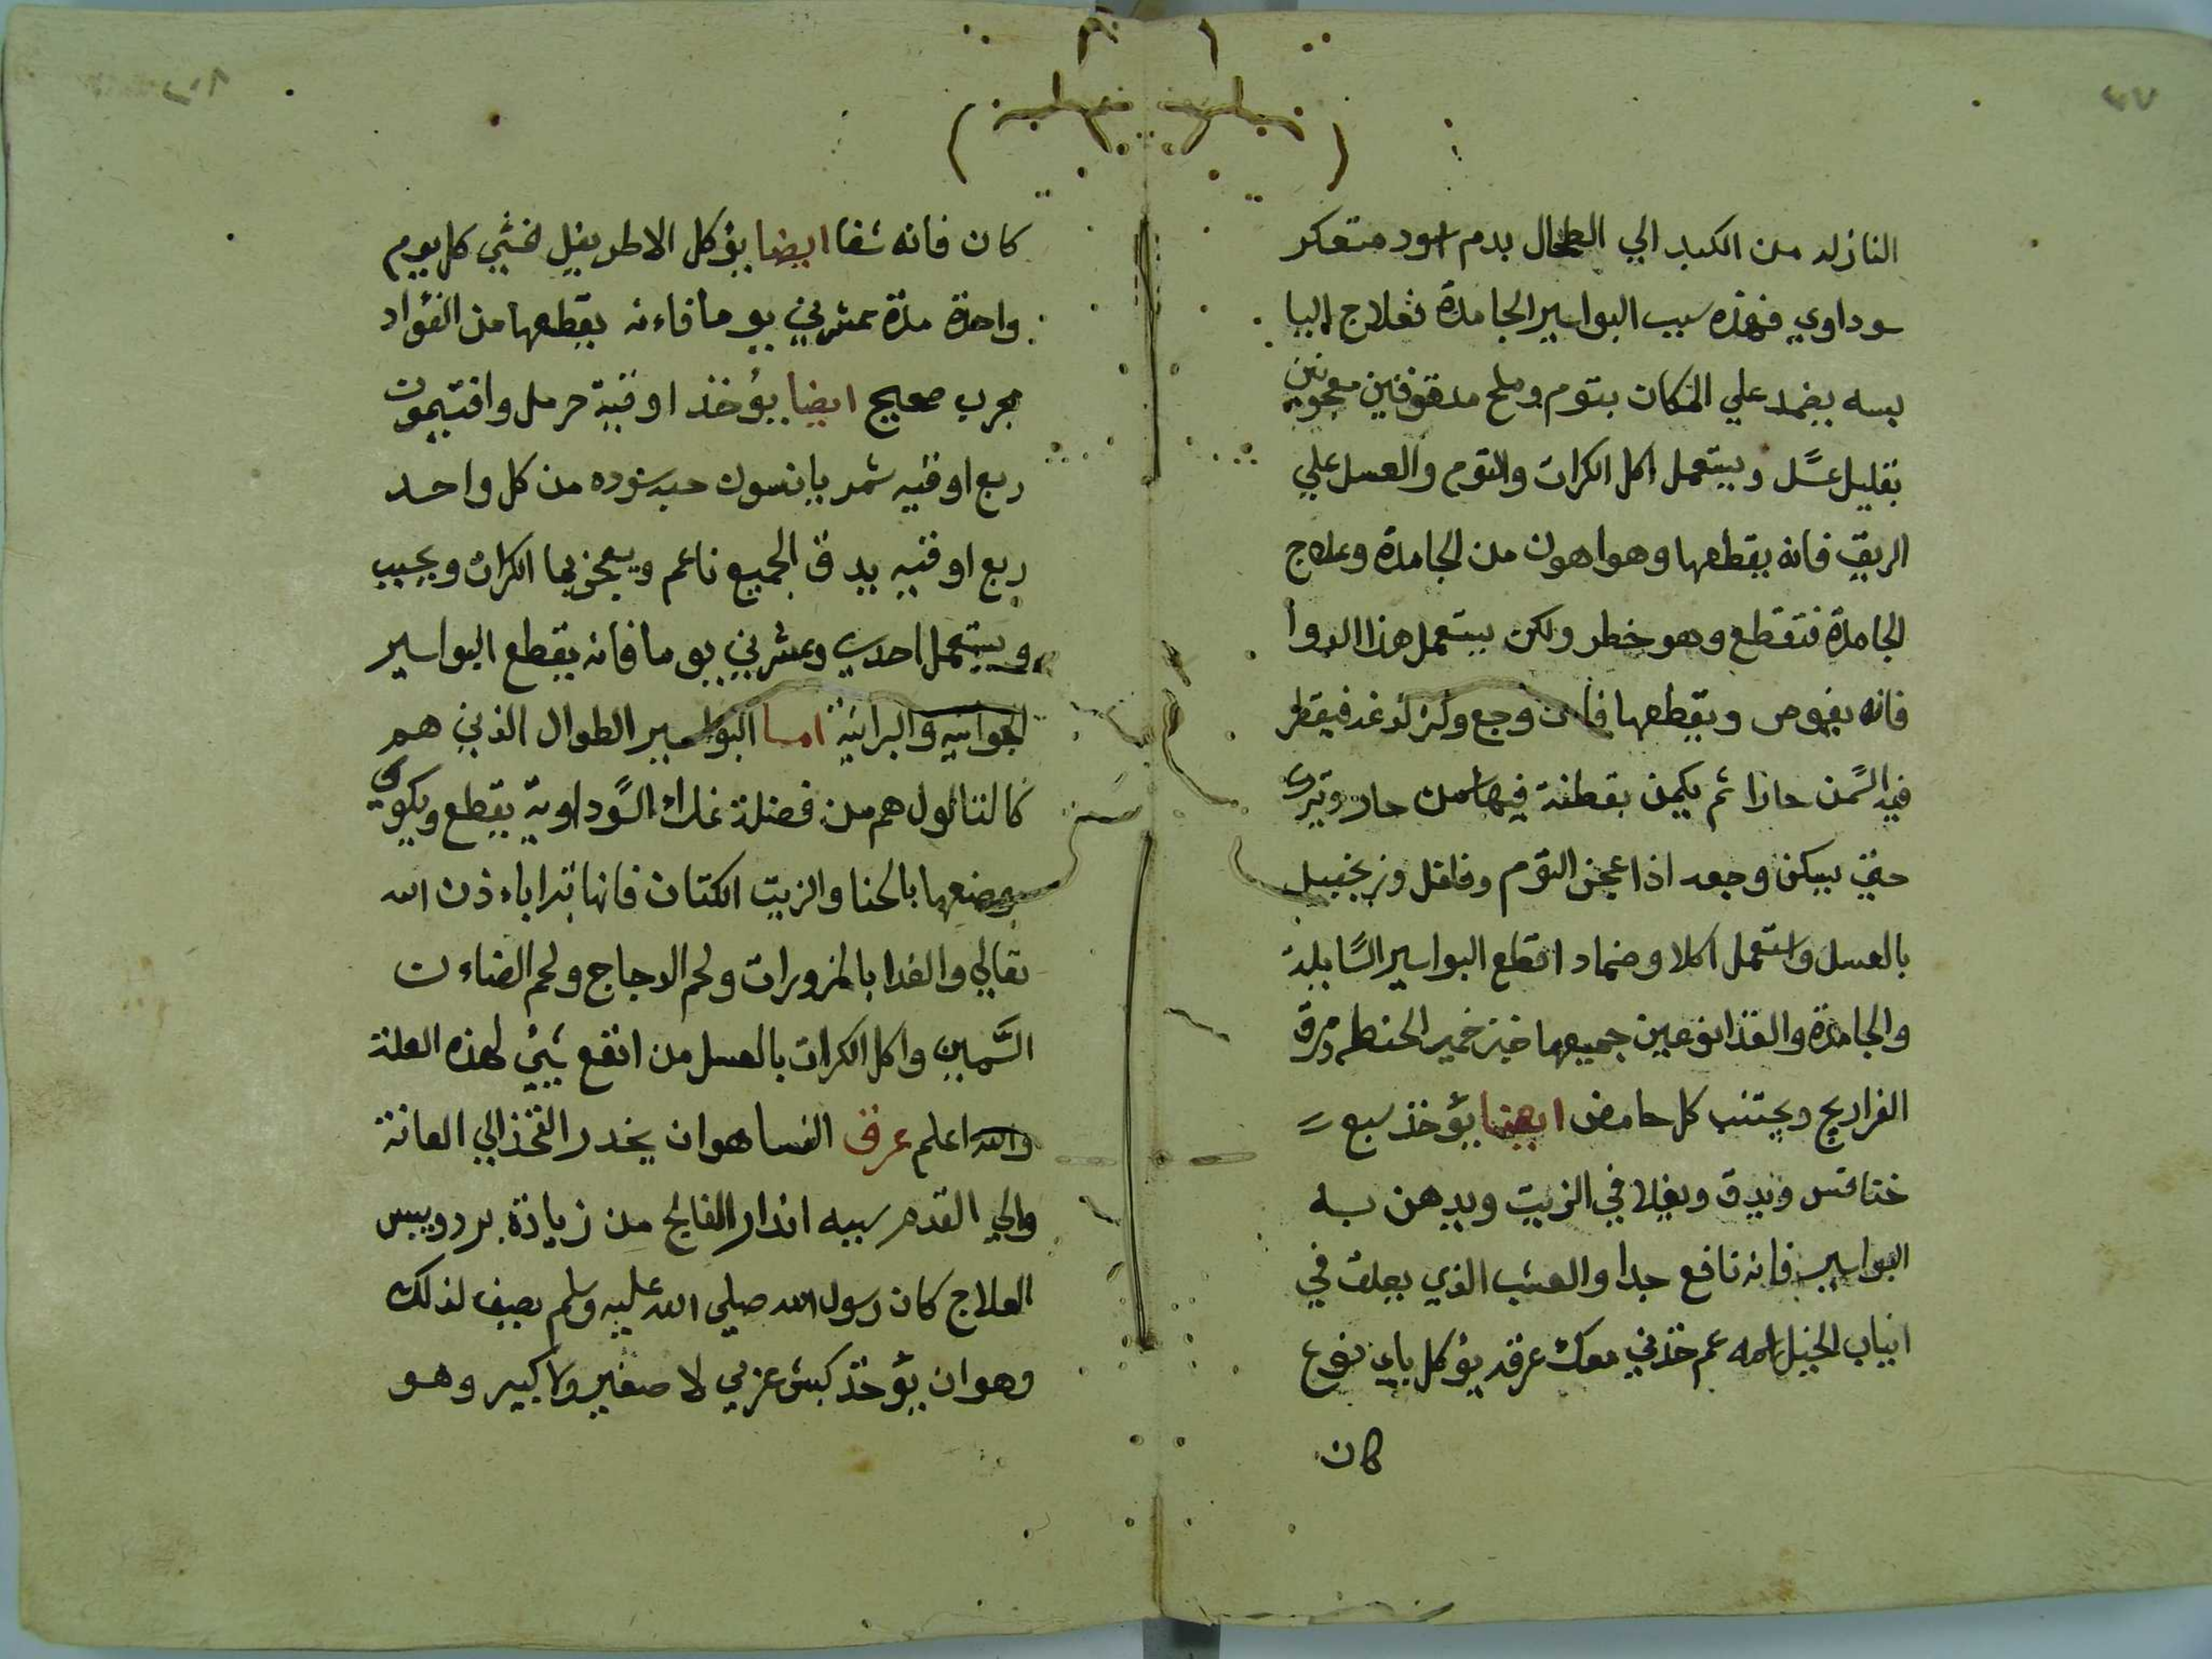 النازله من الكبد الي الطحال بدم اسود متعكر
سوداوي فهذه سبب البواسير الجامدة فعلاج اليبا
بسه يضمد علي المكان بتوم وملح مدقوقين معجونين
بقليل عسل ويستعمل اكل الكرات والتوم والعسل علي
الريق فانه يقطعها وهو اهون من الجامدة وعلاج
الجامدة فتقطع وهو خطر ولكن يستعمل هذا الدوا
فانه يغوص ويقطعها فان وجع وله لدغه فيقطر
فيه السمن حارا ثم يكمن بقطنة فيها سمن حار وتترك
حتي يسكن وجعه اذا عجن التوم وفلفل وزنجبيل
بالعسل واستعمل اكلا وضماد اقطع البواسير السايلة
والجامدة والغذا نوعين جميعها خبز خمير الحنطه ومرق
الفراريج ويجتنب كل حامض ايضا يؤخذ سبع
خنافس ويدق ويغلا في الزيت ويدهن به
البواسير فانه نافع جدا والعشب الذي يعلق في
انياب الخيل اسمه عم خدني معك عرقه يؤكل باي نوع
كان
كان فانه شفا ايضا يؤكل الاطريفل خشي كل يوم
واحدة مدة عشرين يوما فاءنه يقطعها من الفؤاد
مجرب صحيح ايضا يؤخذ اوقية حرمل وافتيمون
ربع اوقيه شمر يانسون حبه سوده من كل واحد
ربع اوقيه يدق الجميع ناعم ويعجن بما الكرات ويحبب
ويستعمل احدي وعشرين يوما فانه يقطع البواسير
الجوانيه والبرانيه اما البواسير الطوال الذين هم
كالتالول هم من فضلة السوداوية يقطع ويكوي
موضعها بالحنا والزيت الكتان فانها تبرا باءذن الله
تعالي والغدا بالمزورات ولحم الدجاج ولحم الضاءن
السمين واكل الكرات بالعسل من انفع شيئ لهذه العلة
والله اعلم عرق النسا هوان يخدر الفخذ الي العانة
والي القدم سببه انذار الفالج من زيادة برد ويبس
العلاج كان رسول الله صلي الله عليه وسلم يصف لذلك
وهوان يؤخذ كبش عربي لا صغير ولا كبير وهو